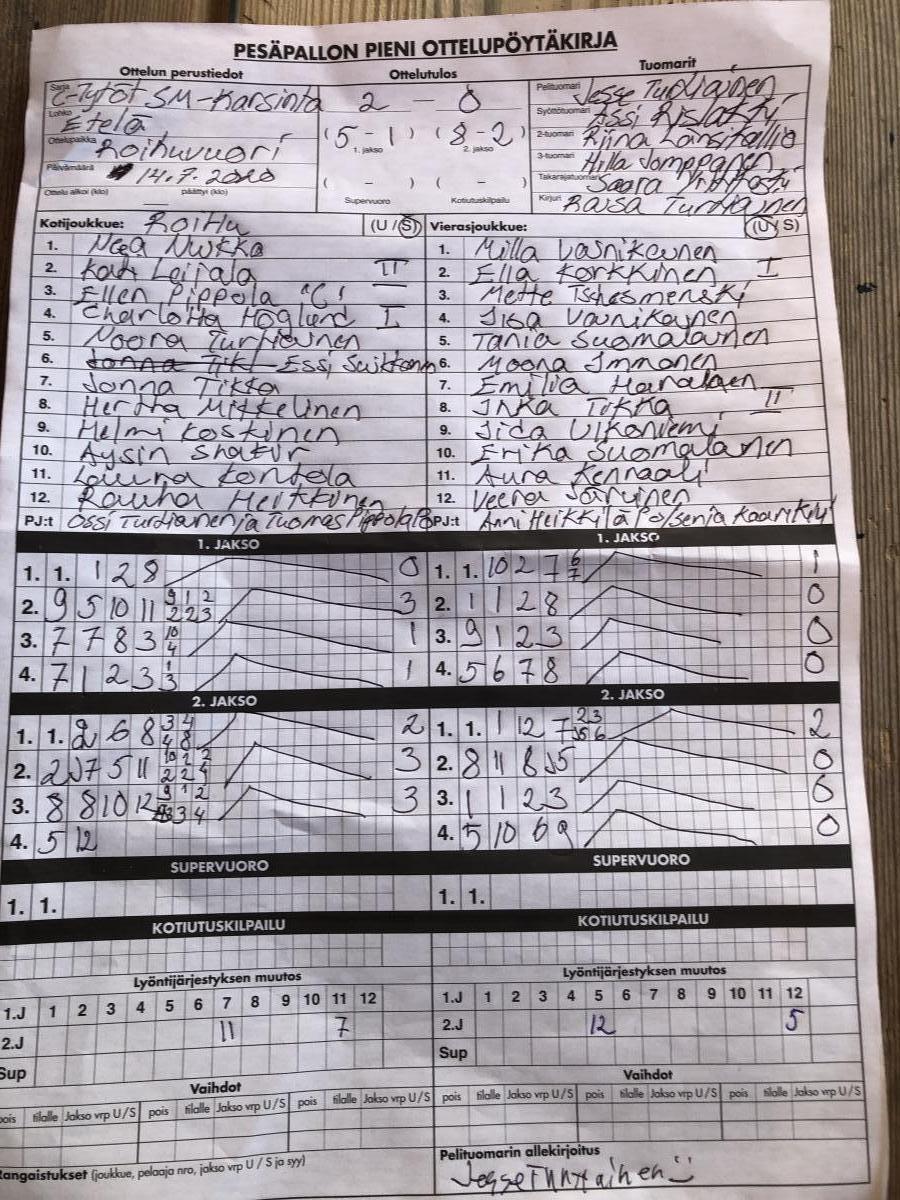 PESÄPALLON PIENI OTTELUPÖYTÄKIRJA
Ottelun perustiedot Ottelutulos Tuomarit
Sarja C-Tytöt SM-Karsinta 2 - 0 Pelituomari Jesse Turtiainen
Lohko Etelä Syöttötuomari Assi Rislakki
Ottelupaikka Roihuvuori (5-1) (8-2) 2-tuomari Riina Länsikallio
1. jakso 2. jakso 3-tuomari Hilla Jomppanen
Päivämäärä 14.7.2020 ( - ) ( - ) Takarajatuomari Saara
Ottelu alkoi (klo) päättyi (klo) Supervuoro Kotiutuskilpailu Kirjuri Raisa Turtiainen
Kotijoukkue: Roihu (U / S) Vierasjoukkue: (U / S)
1. Neea Nukka 1. Milla Vainikainen
2. Kati Leijala II 2. Ella Korkkinen I
3. Ellen Pippola "C" 3. Mette Tschesmenski
4. Charlotta Höglund I 4. Iisa Vainikainen
5. Noora Turtiainen 5. Tania Suomalainen
6. Essi 6. Moona Immonen
7. Jonna Tikka 7. Emilia
8. Hertta Mikkelinen 8. Inka Tikka II
9. Helmi Koskinen 9. Iida Ulkoniemi
10. Aysin 10. Erika Suomalainen
11. Lauura Kontola 11. Aura Kennaali
12. Rauha Heikkinen 12. Veera Järvinen
PJ:t Ossi Turtiainen ja Tuomas Pippola PJ:t Anni Heikkilä
1. JAKSO 1. JAKSO
1. 1. 1 2 8 0 1. 1. 10 2 7 6 7 1
2. 9 5 10 11 9 1 2 2 2 3 3 2. 1 1 2 8 0
3. 7 7 8 3 10 4 1 3. 9 1 2 3 0
4. 7 1 2 3 1 3 1 4. 5 6 7 8 0
2. JAKSO 2. JAKSO
1. 1. 2 6 8 3 4 4 8 2 1. 1. 1 12 7 2 3 5 6 2
2. 2 7 5 11 10 2 2 2 2 4 3 2. 8 11 8 5 0
3. 8 8 10 12 9 1 2 3 3 4 3 3. 1 1 2 3 0
4. 5 12 4. 5 10 6 9 0
SUPERVUORO SUPERVUORO
1. 1. 1. 1.
KOTIUTUSKILPAILU KOTIUTUSKILPAILU
Lyöntijärjestyksen muutos Lyöntijärjestyksen muutos
1.J 1 2 3 4 5 6 7 8 9 10 11 12 1.J 1 2 3 4 5 6 7 8 9 10 11 12
2.J 11 7 2.J 12 5
Sup Sup
Vaihdot Vaihdot
pois tilalle Jakso vrp U / S pois tilalle Jakso vrp U / S pois tilalle Jakso vrp U / S pois tilalle Jakso vrp U / S pois tilalle Jakso vrp U / S pois tilalle Jakso vrp U / S
Rangaistukset (joukkue, pelaaja nro, jakso vrp U / S ja syy) Pelituomarin allekirjoitus
Jesse Turtiainen